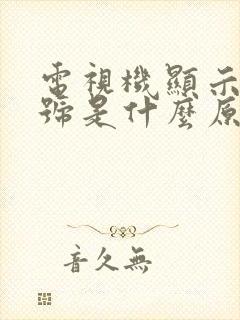 電視機顯示
號是什麼原
音久無